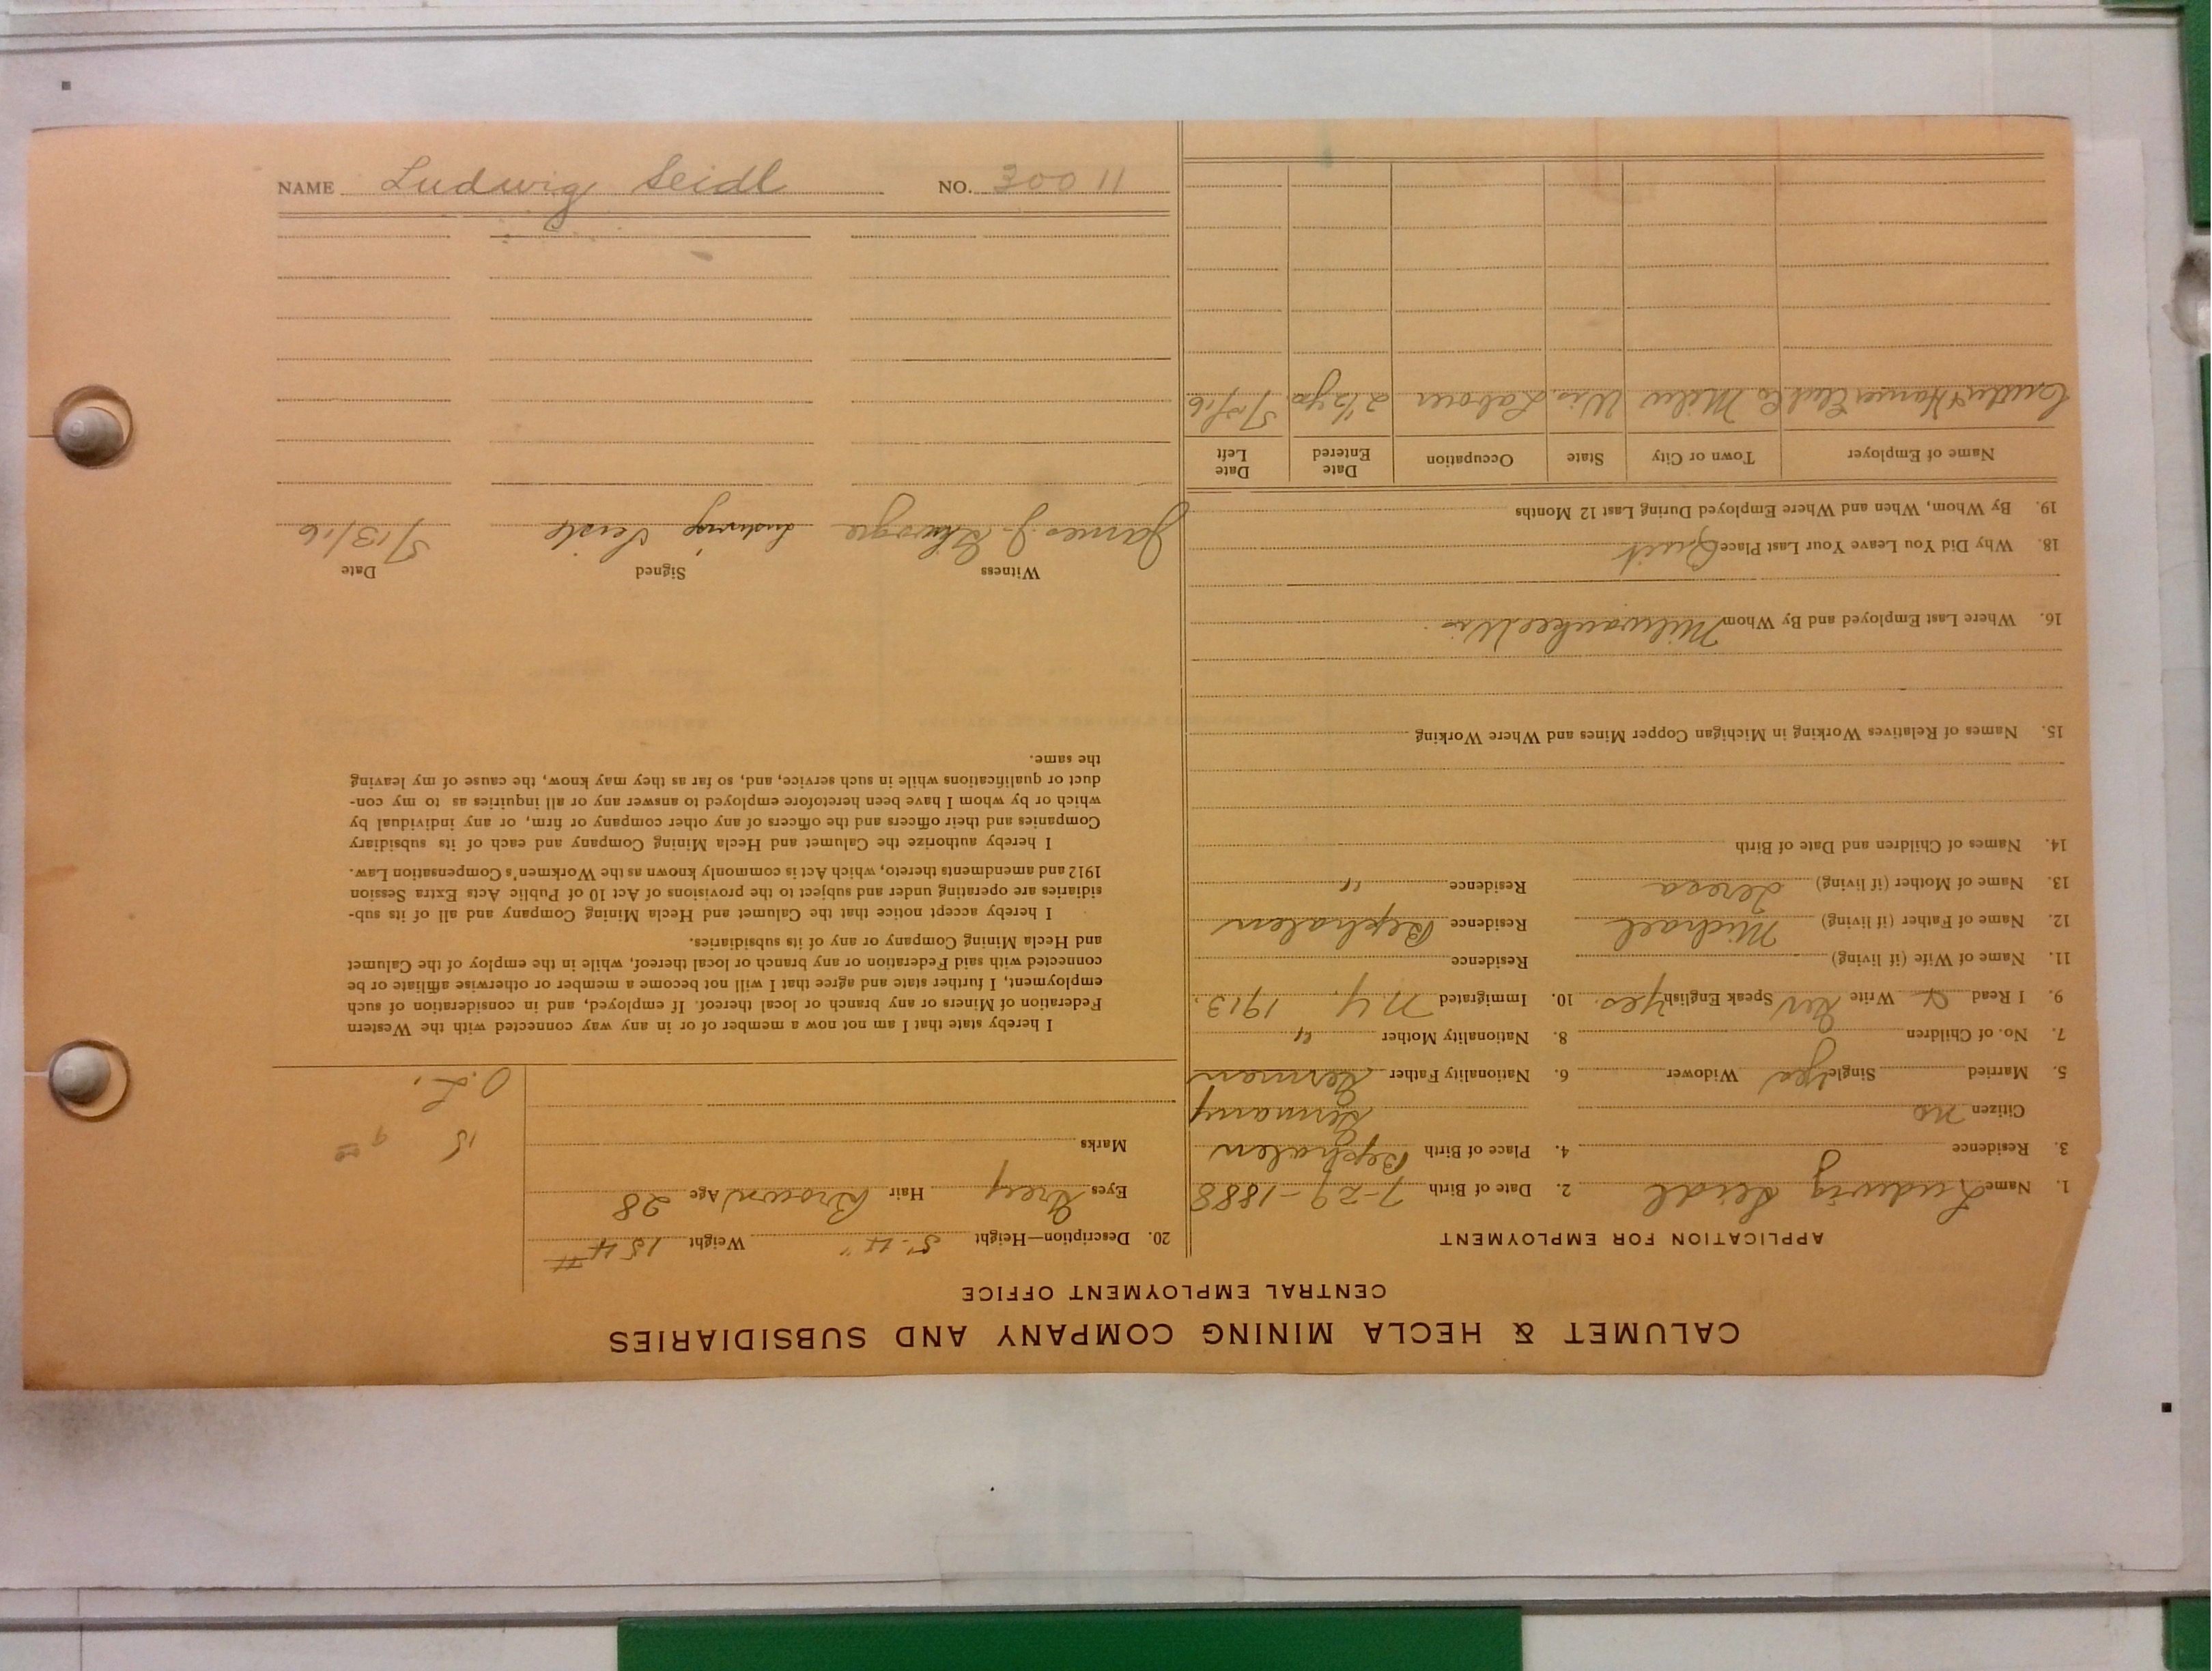 CALUMET & HECLA MINING COMPANY AND SUBSIDIARIES
CENTRAL EMPLOYMENT OFFICE
APPLICATION FOR EMPLOYMENT
1. Name Ludwig Seidl 2. Date of Birth 7-29-1888
3. Residence 4. Place of Birth Bephalen
Citizen no Germany
5. Married Single yes Widower 6. Nationality Father German
7. No. of Children 8. Nationality Mother "
9. I Read & Write Ger Speak English yes. 10. Immigrated N.Y. 1913.
11. Name of Wife (if living) Residence
12. Name of Father (if living) Michael Residence Bephalen
13. Name of Mother (if living) Teresa Residence "
14. Names of Children and Date of Birth
15. Names of Relatives Working in Michigan Copper Mines and Where Working
16. Where Last Employed and By Whom Milwaukee Wis.
18. Why Did You Leave Your Last Place Quit
19. By Whom, When and Where Employed During Last 12 Months
Name of Employer Town or City State Occupation Date Entered Date Left
Hammer Co Milw Wis. Laborer 2 1/2 yrs 5/10/16
20. Description—Height 5'-4" Weight 154#
Eyes Grey Hair Brown Age 28
Marks
15 9 00
O.L.
I hereby state that I am not now a member of or in any way connected with the Western
Federation of Miners or any branch or local thereof. If employed, and in consideration of such
employment, I further state and agree that I will not become a member or otherwise affiliate or be
connected with said Federation or any branch or local thereof, while in the employ of the Calumet
and Hecla Mining Company or any of its subsidiaries.
I hereby accept notice that the Calumet and Hecla Mining Company and all of its sub-
sidiaries are operating under and subject to the provisions of Act 10 of Public Acts Extra Session
1912 and amendments thereto, which Act is commonly known as the Workmen's Compensation Law.
I hereby authorize the Calumet and Hecla Mining Company and each of its subsidiary
Companies and their officers and the officers of any other company or firm, or any individual by
which or by whom I have been heretofore employed to answer any or all inquiries as to my con-
duct or qualifications while in such service, and, so far as they may know, the cause of my leaving
the same.
Witness Signed Date
James J. Ludwig Seidl 5/13/16
NAME Ludwig Seidl NO. 30011